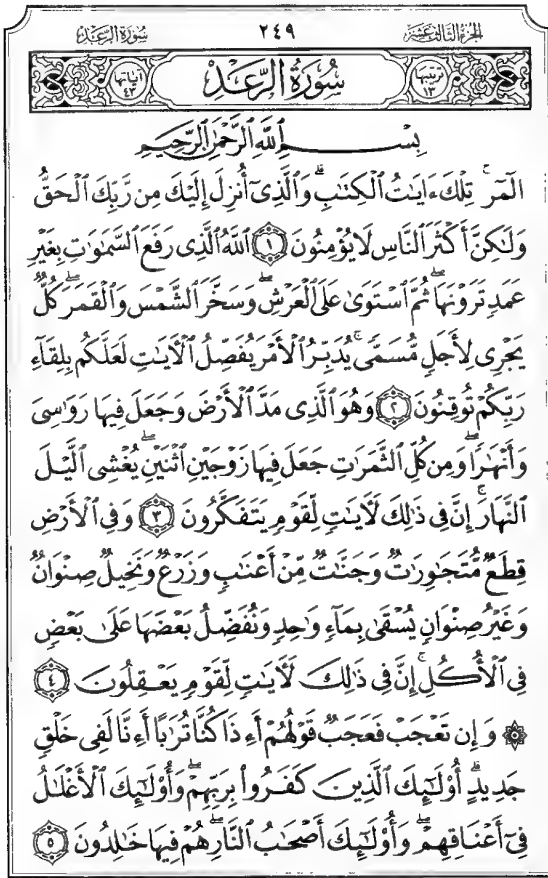 الجزء الثالث عشر ٢٤٩ سورة الرعد
ترتيبها ١٣ سُورَةُ الرَّعْدِ آياتها ٤٣
بِسْمِ اللَّهِ الرَّحْمَٰنِ الرَّحِيمِ
الٓمٓرۚ تِلْكَ ءَايَٰتُ ٱلْكِتَٰبِۗ وَٱلَّذِىٓ أُنزِلَ إِلَيْكَ مِن رَّبِّكَ ٱلْحَقُّ
وَلَٰكِنَّ أَكْثَرَ ٱلنَّاسِ لَا يُؤْمِنُونَ ١ ٱللَّهُ ٱلَّذِى رَفَعَ ٱلسَّمَٰوَٰتِ بِغَيْرِ
عَمَدٍ تَرَوْنَهَاۖ ثُمَّ ٱسْتَوَىٰ عَلَى ٱلْعَرْشِۖ وَسَخَّرَ ٱلشَّمْسَ وَٱلْقَمَرَۖ كُلٌّ
يَجْرِى لِأَجَلٍ مُّسَمًّىۚ يُدَبِّرُ ٱلْأَمْرَ يُفَصِّلُ ٱلْءَايَٰتِ لَعَلَّكُم بِلِقَآءِ
رَبِّكُمْ تُوقِنُونَ ٢ وَهُوَ ٱلَّذِى مَدَّ ٱلْأَرْضَ وَجَعَلَ فِيهَا رَوَٰسِىَ
وَأَنْهَٰرًاۖ وَمِن كُلِّ ٱلثَّمَرَٰتِ جَعَلَ فِيهَا زَوْجَيْنِ ٱثْنَيْنِۖ يُغْشِى ٱلَّيْلَ
ٱلنَّهَارَۚ إِنَّ فِى ذَٰلِكَ لَءَايَٰتٍ لِّقَوْمٍ يَتَفَكَّرُونَ ٣ وَفِى ٱلْأَرْضِ
قِطَعٌ مُّتَجَٰوِرَٰتٌ وَجَنَّٰتٌ مِّنْ أَعْنَٰبٍ وَزَرْعٌ وَنَخِيلٌ صِنْوَانٌ
وَغَيْرُ صِنْوَانٍ يُسْقَىٰ بِمَآءٍ وَٰحِدٍ وَنُفَضِّلُ بَعْضَهَا عَلَىٰ بَعْضٍ
فِى ٱلْأُكُلِۚ إِنَّ فِى ذَٰلِكَ لَءَايَٰتٍ لِّقَوْمٍ يَعْقِلُونَ ٤
۞ وَإِن تَعْجَبْ فَعَجَبٌ قَوْلُهُمْ أَءِذَا كُنَّا تُرَٰبًا أَءِنَّا لَفِى خَلْقٍ
جَدِيدٍۗ أُو۟لَٰٓئِكَ ٱلَّذِينَ كَفَرُوا۟ بِرَبِّهِمْۖ وَأُو۟لَٰٓئِكَ ٱلْأَغْلَٰلُ
فِىٓ أَعْنَاقِهِمْۖ وَأُو۟لَٰٓئِكَ أَصْحَٰبُ ٱلنَّارِۖ هُمْ فِيهَا خَٰلِدُونَ ٥